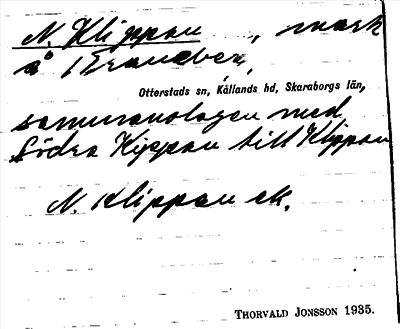 N. Klippan, mark
å Brandber,
Otterstads sn, Kållands hd, Skaraborgs län,
sammanslagen med
Södra Klippan till Klippan
N. Klippan ek.
THORVALD JONSSON 1935.